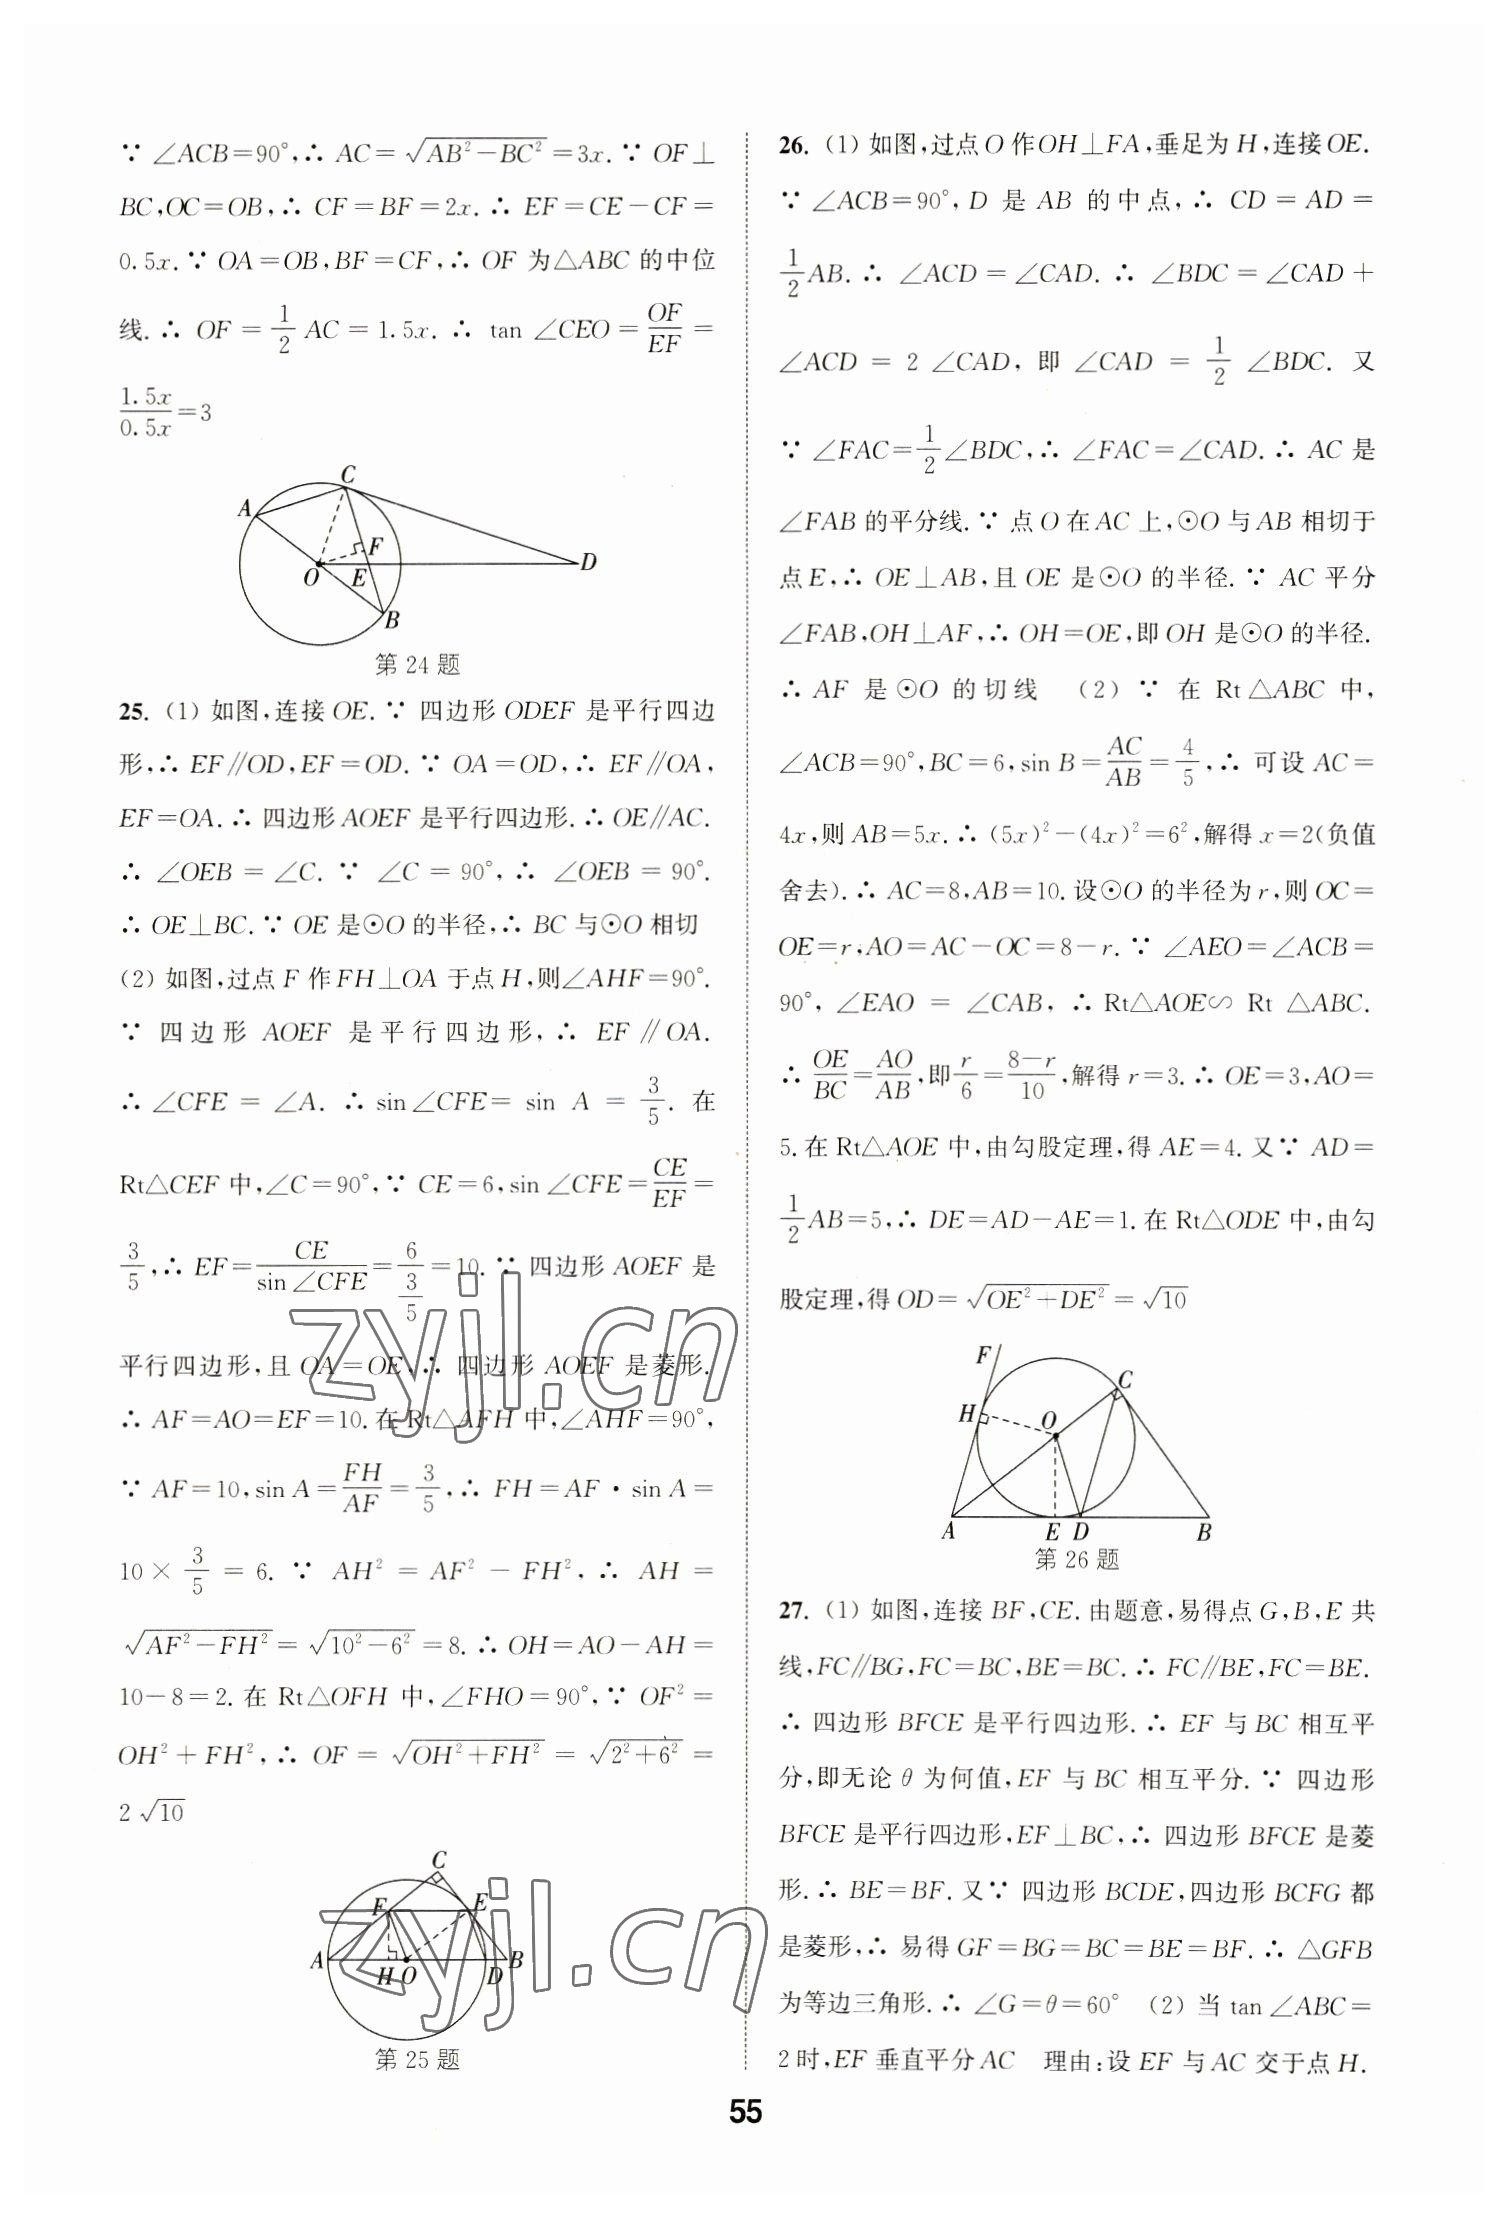 ∵ ∠ACB=90°,∴ AC=√(AB²−BC²)=3x.∵ OF⊥
BC,OC=OB,∴ CF=BF=2x.∴ EF=CE−CF=
0.5x.∵ OA=OB,BF=CF,∴ OF 为△ABC 的中位
线.∴ OF=1/2 AC=1.5x.∴ tan ∠CEO=OF/EF=
1.5x/0.5x=3
C
A
F
O
E
D
B
第 24 题
25. (1) 如图,连接 OE.∵ 四边形 ODEF 是平行四边
形,∴ EF∥OD,EF=OD.∵ OA=OD,∴ EF∥OA,
EF=OA.∴ 四边形 AOEF 是平行四边形.∴ OE∥AC.
∴ ∠OEB=∠C.∵ ∠C=90°,∴ ∠OEB=90°.
∴ OE⊥BC.∵ OE 是⊙O 的半径,∴ BC 与⊙O 相切
(2) 如图,过点 F 作 FH⊥OA 于点 H,则∠AHF=90°.
∵ 四边形 AOEF 是平行四边形,∴ EF∥OA.
∴ ∠CFE=∠A.∴ sin∠CFE=sin A=3/5.在
Rt△CEF 中,∠C=90°,∵ CE=6,sin ∠CFE=CE/EF=
3/5,∴ EF=CE/sin ∠CFE=6/(3/5)=10.∵ 四边形 AOEF 是
平行四边形,且 OA=OE,∴ 四边形 AOEF 是菱形.
∴ AF=AO=EF=10.在 Rt△AFH 中,∠AHF=90°,
∵ AF=10,sin A=FH/AF=3/5,∴ FH=AF·sin A=
10×3/5=6.∵ AH²=AF²−FH²,∴ AH=
√(AF²−FH²)=√(10²−6²)=8.∴ OH=AO−AH=
10−8=2.在 Rt△OFH 中,∠FHO=90°,∵ OF²=
OH²+FH²,∴ OF=√(OH²+FH²)=√(2²+6²)=
2√10
C
F
E
A
H
O
D
B
第 25 题
26. (1) 如图,过点 O 作 OH⊥FA,垂足为 H,连接 OE.
∵ ∠ACB=90°,D 是 AB 的中点,∴ CD=AD=
1/2AB.∴ ∠ACD=∠CAD.∴ ∠BDC=∠CAD+
∠ACD=2∠CAD,即∠CAD=1/2∠BDC.又
∵ ∠FAC=1/2∠BDC,∴ ∠FAC=∠CAD.∴ AC 是
∠FAB 的平分线.∵ 点 O 在 AC 上,⊙O 与 AB 相切于
点 E,∴ OE⊥AB,且 OE 是⊙O 的半径.∵ AC 平分
∠FAB,OH⊥AF,∴ OH=OE,即 OH 是⊙O 的半径.
∴ AF 是⊙O 的切线 (2) ∵ 在 Rt△ABC 中,
∠ACB=90°,BC=6,sin B=AC/AB=4/5,∴ 可设 AC=
4x,则 AB=5x.∴ (5x)²−(4x)²=6²,解得 x=2(负值
舍去).∴ AC=8,AB=10.设⊙O 的半径为 r,则 OC=
OE=r,AO=AC−OC=8−r.∵ ∠AEO=∠ACB=
90°,∠EAO=∠CAB,∴ Rt△AOE∽Rt△ABC.
∴ OE/BC=AO/AB,即r/6=(8−r)/10,解得 r=3.∴ OE=3,AO=
5.在 Rt△AOE 中,由勾股定理,得 AE=4.又∵ AD=
1/2AB=5,∴ DE=AD−AE=1.在 Rt△ODE 中,由勾
股定理,得 OD=√(OE²+DE²)=√10
F
C
H
O
A
E
D
B
第 26 题
27. (1) 如图,连接 BF,CE.由题意,易得点 G,B,E 共
线,FC∥BG,FC=BC,BE=BC.∴ FC∥BE,FC=BE.
∴ 四边形 BFCE 是平行四边形.∴ EF 与 BC 相互平
分,即无论 θ 为何值,EF 与 BC 相互平分.∵ 四边形
BFCE 是平行四边形,EF⊥BC,∴ 四边形 BFCE 是菱
形.∴ BE=BF.又∵ 四边形 BCDE,四边形 BCFG 都
是菱形,∴ 易得 GF=BG=BC=BE=BF.∴ △GFB
为等边三角形.∴ ∠G=θ=60° (2) 当 tan ∠ABC=
2 时,EF 垂直平分 AC 理由:设 EF 与 AC 交于点 H.
55
zyjl.cn
zyjl.cn